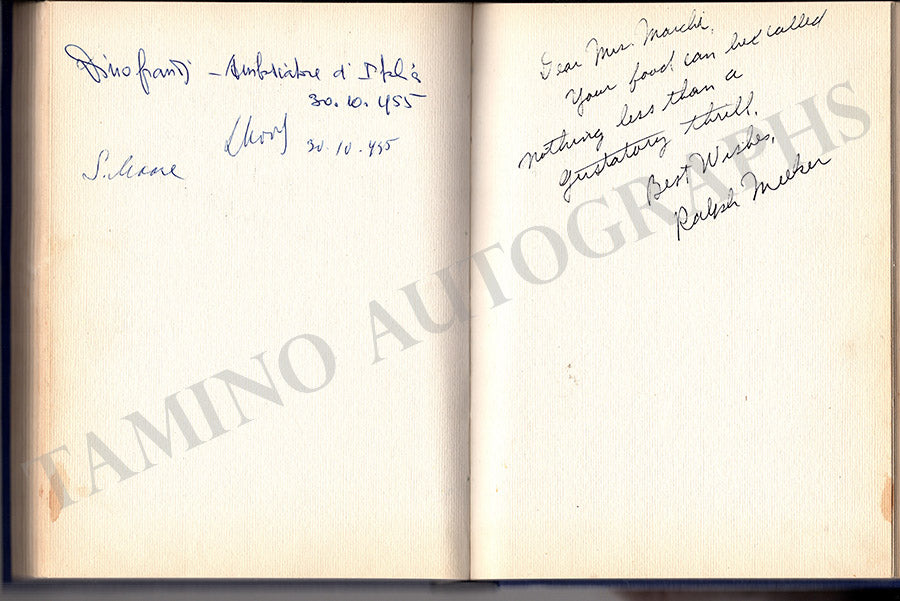 Dino Grandi - Ambasciatore d'Italia
30.10.955
30.10.955
S. Moore
Dear Mrs. Marchi,
Your food can be called
nothing less than a
gustatory thrill.
Best Wishes,
Ralph Meeker
TAMINO AUTOGRAPHS